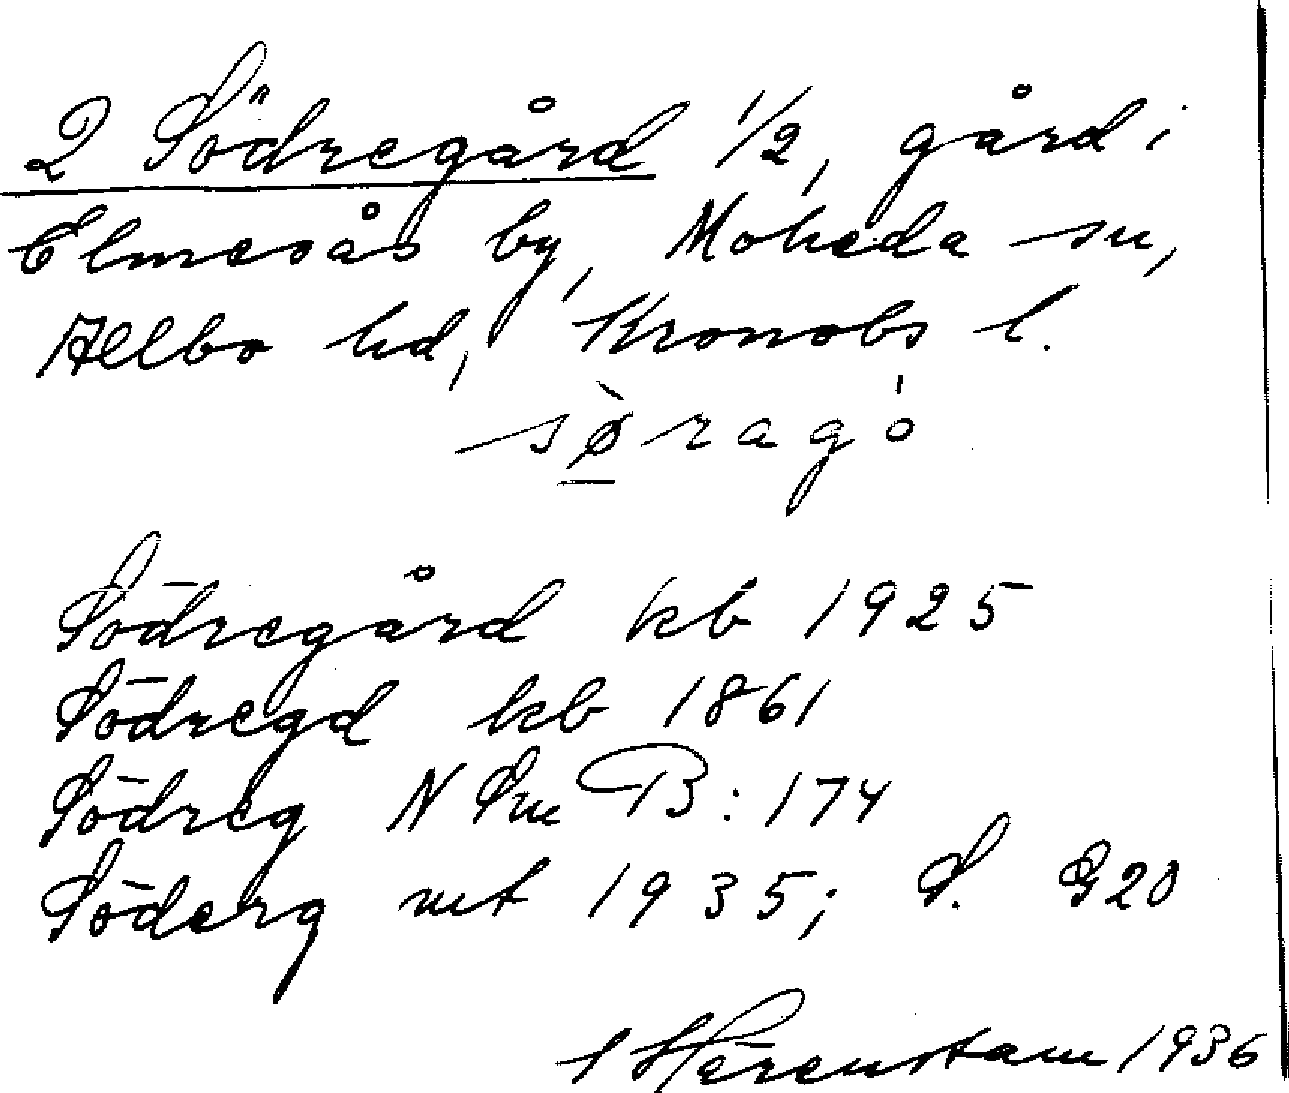 2 Södregård 1/2, gård i
Elmesås by, Moheda sn,
Allbo hd, Kronobs l.
sø̀ragó
Södregård kb 1925
Södregd kb 1861
Södreg N Sm B: 174
Söderg mt 1935; S. G20
1936